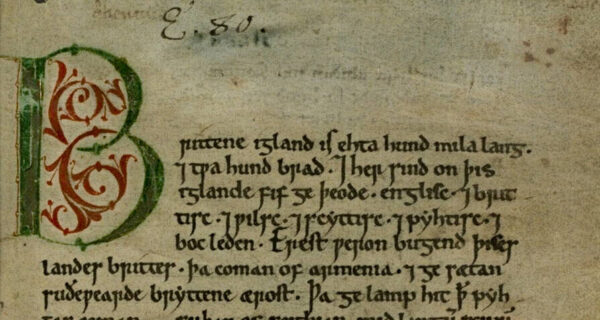 E. 80.
Brittene igland is ehta hund mila lang.
⁊ tƿa hund brad. ⁊ her sind on þis
iglande fif ge þeode. englisc. ⁊ brit
tisc. ⁊ ƿilsc. ⁊ scyttisc. ⁊ pyhtisc. ⁊
boc leden. Erest ƿeron bugend þises
landes brittes. þa coman of armenia. ⁊ ge sætan
suðeƿearde bryttene ærost. Þa ge lamp hit ꝥ pyh
tas coman suþan of scithian. mid langū